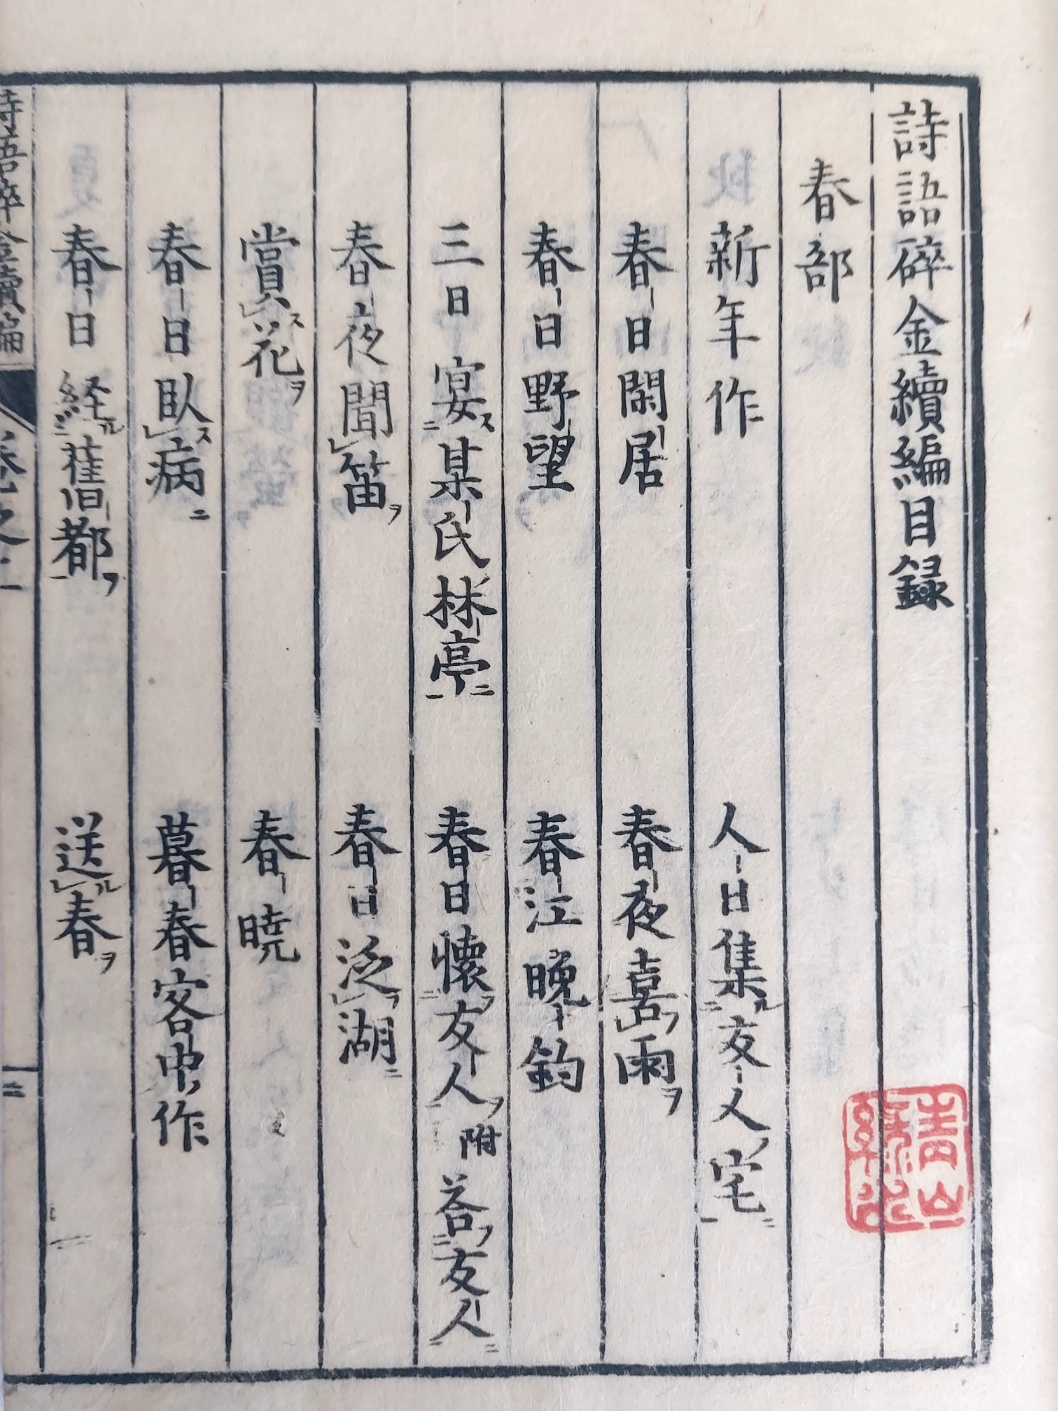 詩語碎金續編目録
春部
新年作 人日集友人宅
春日閑居 春夜喜雨
春日野望 春江晩釣
三日宴某氏林亭 春日懷友人 附 荅友人
春夜聞笛 春日泛湖
賞花 春曉
春日臥病 暮春客中作
春日経舊都 送春
詩語碎金續編
青山緑水